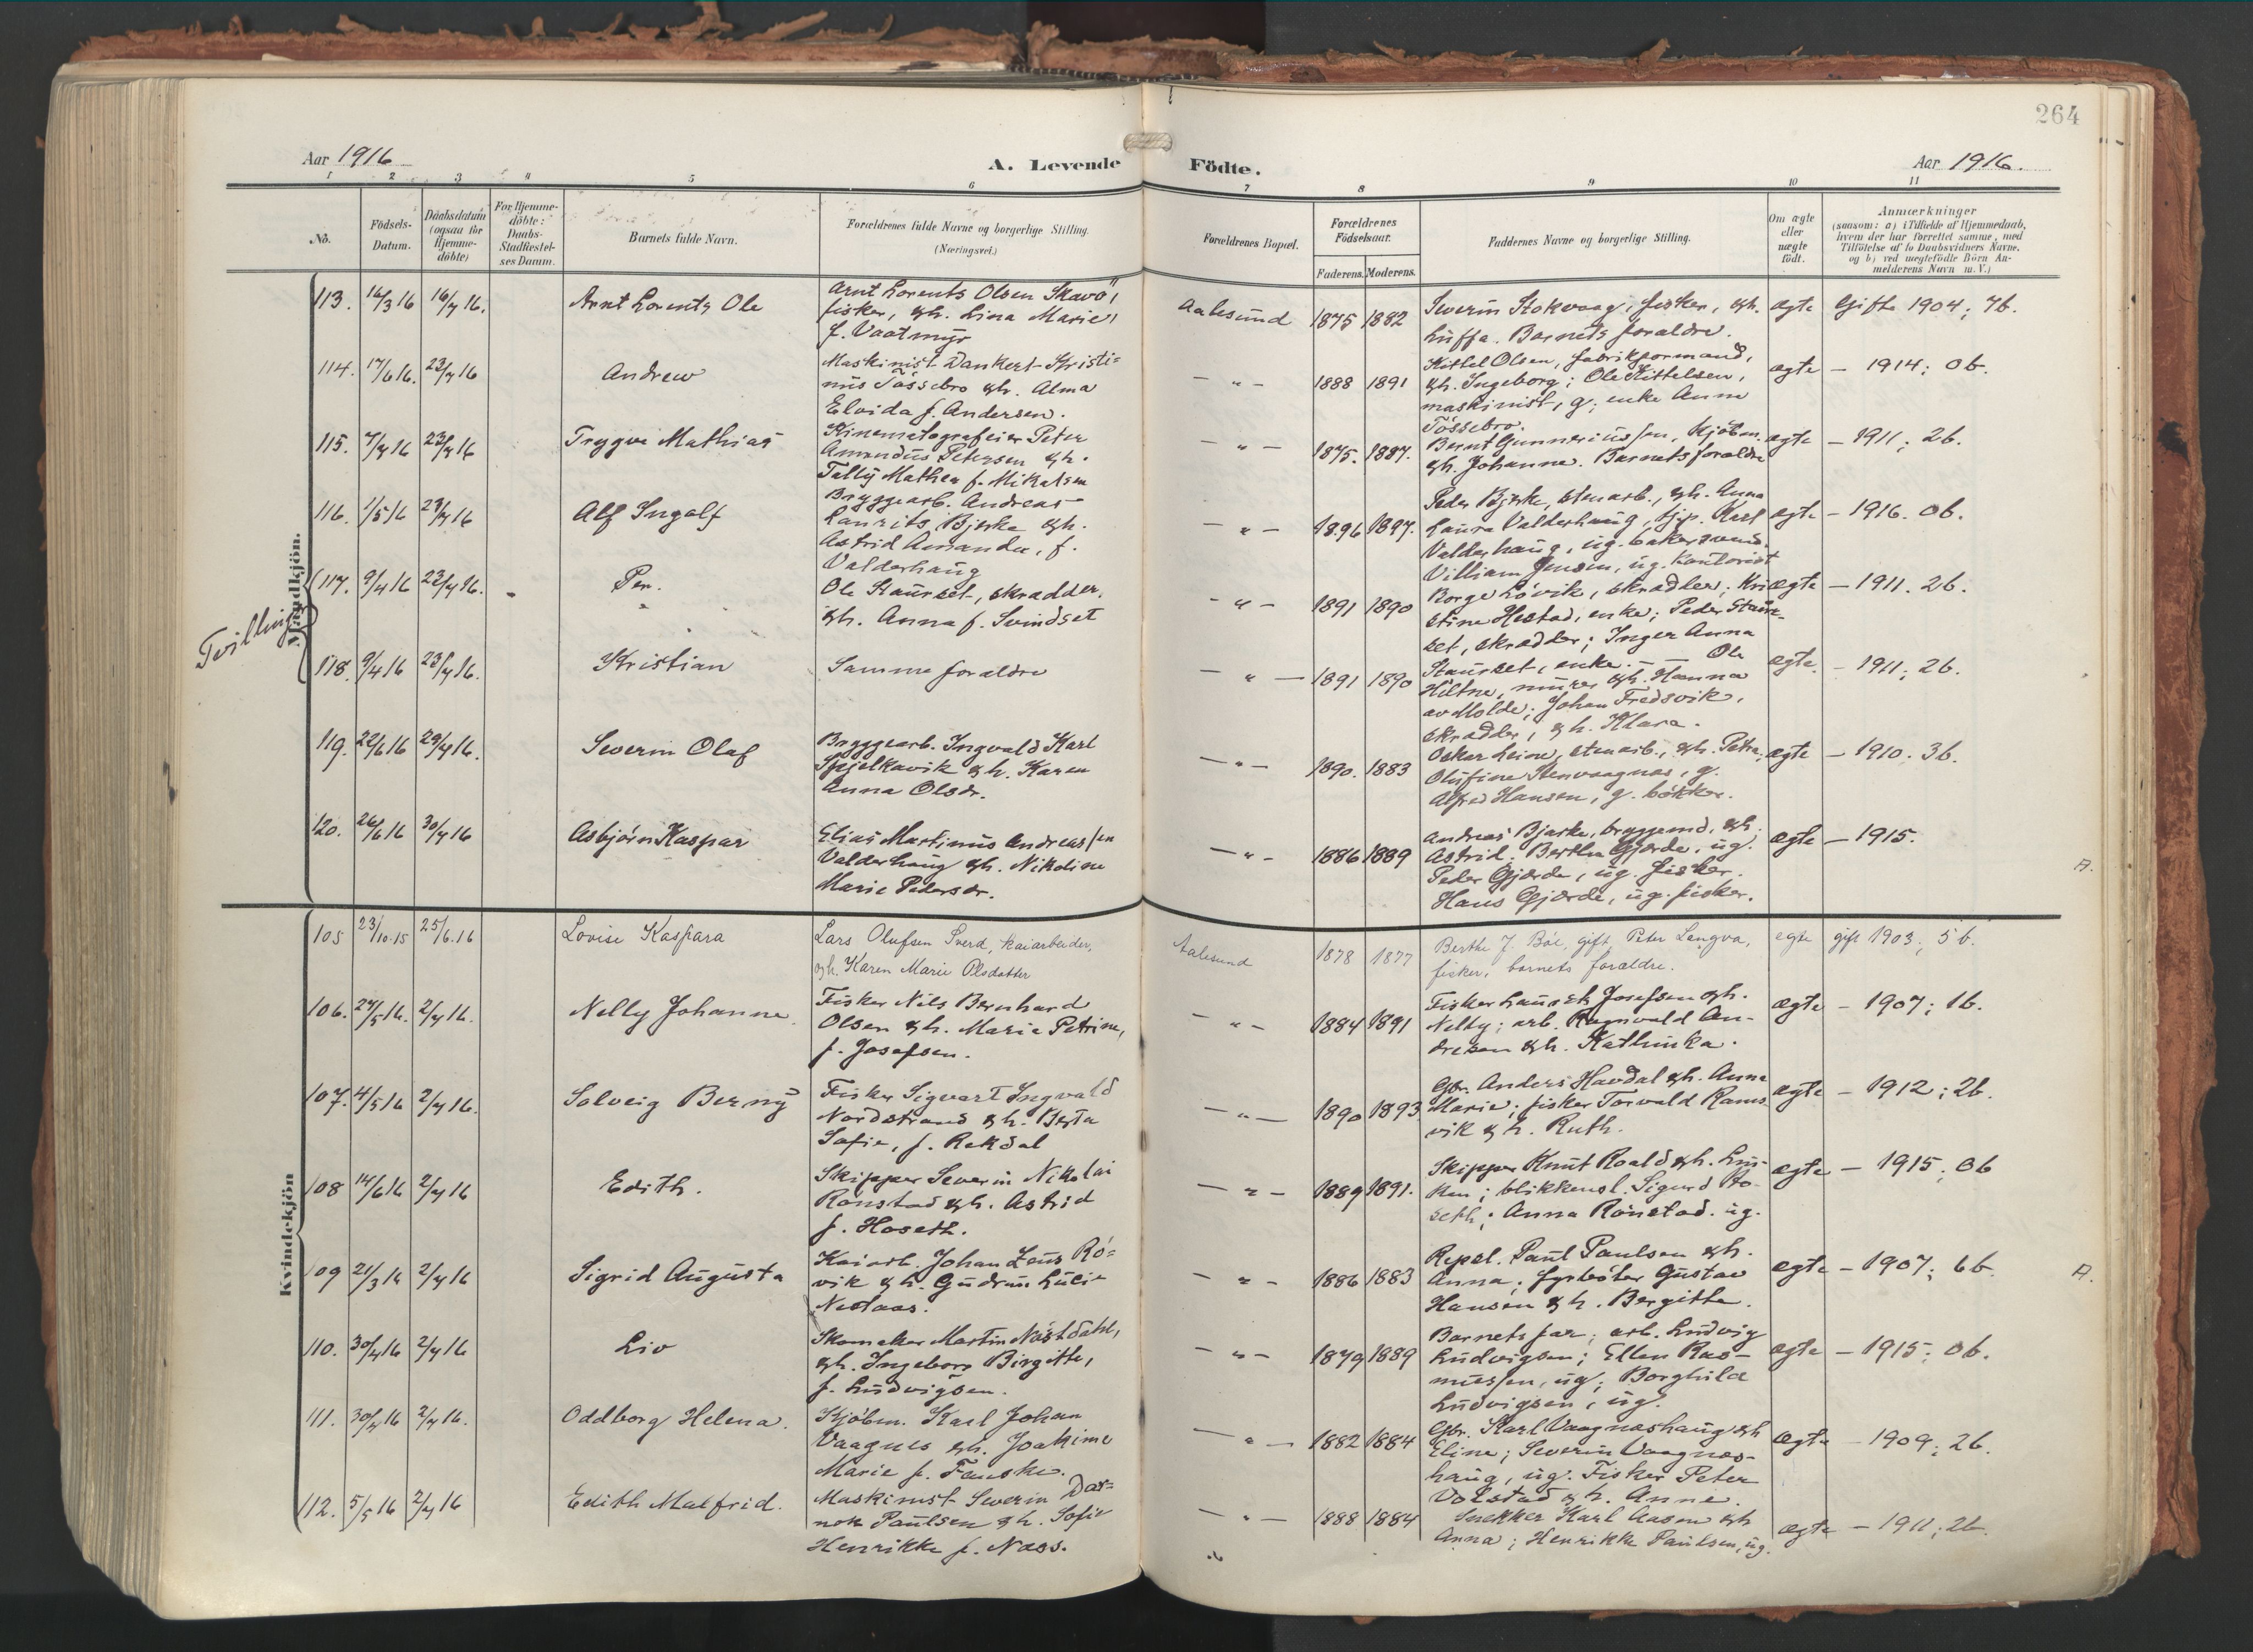 264
Aar 1916
A. Levende Födte.
Aar 1916.
1 2 3 4 5 6 7 8 9 10 11
No.
Födsels-Datum.
Daabsdatum (ogsaa for Hjemme-döbte)
For Hjemme-döbte: Daabs-Stadfestel-ses Datum.
Barnets fulde Navn.
Forældrenes fulde Navne og borgerlige Stilling. (Næringsvei.)
Forældrenes Bopæl.
Forældrenes Födselsaar.
Faderens. Moderens.
Faddernes Navne og borgerlige Stilling.
Om ægte eller uægte födt.
Anmærkninger
(saasom: a) i Tilfælde af Hjemmedaab,
hvem der har forrettet samme, med
Tilföielse af to Daabsvidners Navne,
og b) ved uægtefödte Börn An-
melderens Navn m. V.)
Mandkjön.
113. 16/3 16 16/7 16. Arnt Lorents Ole
Arnt Lorents Olsen Skavö,
fisker, og h. Lina Marie,
f. Vaatmyr
Aalesund 1875 1882
Severin Stokvaag, fisker, og h.
Luffa. Barnets forældre.
ægte Gifte 1904; 7b.
114. 17/6 16. 23/7 16 Andrew
Maskinist Dankert Kristi-
nus Tössebro og h. Alma
Elvida f. Andersen.
— „ — 1888 1891
Kittel Olsen, fabrikformand,
og h. Ingeborg; Ole Kittelsen,
maskinist, g; enke Anna
Tössebro.
ægte — 1914; 0b.
115. 7/7 16 23/7 16 Trygve Mathias
Kinematografeier Peter
Amandus Petersen og h.
Tally Mathea f. Mikalsen
— „ — 1875. 1887.
Bernt Gunneriussen, kjöbm.
og h. Johanne. Barnets forældre
ægte — 1911; 2b.
116. 1/5 16 23/7 16 Alf Ingolf
Bryggearb. Andreas
Laurits Bjerke og h.
Astrid Amanda, f.
Valderhaug
— „ — 1896 1897.
Peder Bjerke, stenarb., og h. Anna
Laura Valderhaug, tjp. Karl
Valderhaug, ug. bakersvend.
Villiam Jensen, ug. kontorist
ægte — 1916. 0b.
Tvilling
117. 9/4 16 23/7 16. Per.
Ole Staurset, skrædder,
og h. Anna f. Svindset
- „ - 1891 1890
Borge Lövik, skrædder; Kri-
stine Hestad, enke; Peder Staur-
set, skrædder; Inger Anna
Staurset, enke. —
ægte — 1911. 2b.
118. 9/4 16 23/7 16. Kristian
Samme forældre
— „ — 1891 1890
Ole
Hiltne, murer og h. Hanna
av Molde; Johan Fredsvik,
skrædder, og h. Klara.
ægte — 1911; 2b.
119. 22/6 16 29/7 16. Severin Olaf
Bryggearb. Ingvald Karl
Spjelkavik og h. Karen
Anna Olsdr.
— „ — 1890. 1883
Oskar Leine, stenarb., og h. Petra;
Olufine Stenvaagnæs, g.
Alfred Hansen, g. bökker.
ægte — 1910. 3b.
120. 26/6 16 30/7 16 Asbjörn Kaspar
Elias Martinus Andreassen
Valderhaug og h. Nikoline
Marie Pedersdr.
— „ — 1886 1889
Andreas Bjerke, bryggemd, og h.
Astrid; Berthe Gjærde, ug.
Peder Gjærde, ug. fisker.
Hans Gjærde, ug. fisker.
ægte — 1915.
A.
Kvindekjön
105 23/10.15 25/6.16 Lovise Kaspara
Lars Olufsen Sverd, kaiarbeider,
og h. Karen Marie Olsdatter
Aalesund 1878 1877
Berthe J. Böe, gift, Peter Langva,
fisker, barnets forældre.
egte gift 1903; 5 b.
106. 27/5 16. 2/7 16. Nelly Johanne
Fisker Nils Bernhard
Olsen og h. Marie Petrine,
f. Josefsen.
— „ — 1884 1891
Fisker Lauritz Josefsen og h.
Nelly; arb. Ragnvald An-
dresen og h. Kathinka.
ægte — 1907; 1b.
107. 4/5 16 2/7 16. Solveig Berny
Fisker Sigvart Ingvald
Nordstrand og h. Berta
Sofie, f. Rekdal
— „ — 1890 1893
Gbr. Anders Havdal og h. Anna
Marie; fisker Torvald Rams-
vik og h. Ruth.
ægte — 1912; 2b.
108 14/6 16 2/7 16 Edith.
Skipper Severin Nikolai
Rönstad og h. Astrid
f. Hoseth.
— „ — 1889 1891.
Skipper Knut Roald og h. Lou-
ken; blikkensl. Sigurd Ho-
seth; Anna Rönstad. ug.
ægte — 1915; 0b
109 21/3 16 2/7 16 Sigrid Augusta
Kaiarb. Johan Zeus Rö-
vik og h. Gudrun Lucie
Nestaas.
— „ — 1886 1883
Repsl. Paul Paulsen og h.
Anna; fyrböter Gustav
Hansen og h. Bergitte.
ægte — 1907; 6b.
A.
110. 30/4 16 2/7 16 Liv
Skomaker Martin Nöstdahl,
og h. Ingeborg Birgitte,
f. Ludvigsen.
— „ — 1879 1889
Barnets far; arb. Ludvig
Ludvigsen; Ellen Ras-
mussen, ug; Borghild
Ludvigsen, ug.
ægte — 1915; 0b.
111. 30/4 16 2/7 16. Oddborg Helena.
Kjöbm. Karl Johan
Vaagnes og h. Joakime
Marie f. Fauske.
— „ — 1882 1884
Gbr. Karl Vaagneshaug og h
Eline; Severin Vaagnes-
haug, ug. Fisker Peter
Volstad og h. Anne.
ægte — 1909; 2b.
112. 5/5 16 2/7 16 Edith Malfrid.
Maskinist Severin
Paulsen og h. Sofie
Henrikke f. Næss.
— „ — 1888 1884
Snekker Karl Aasen og h
Anna; Henrikke Paulsen, ug.
ægte — 1911; 2b.